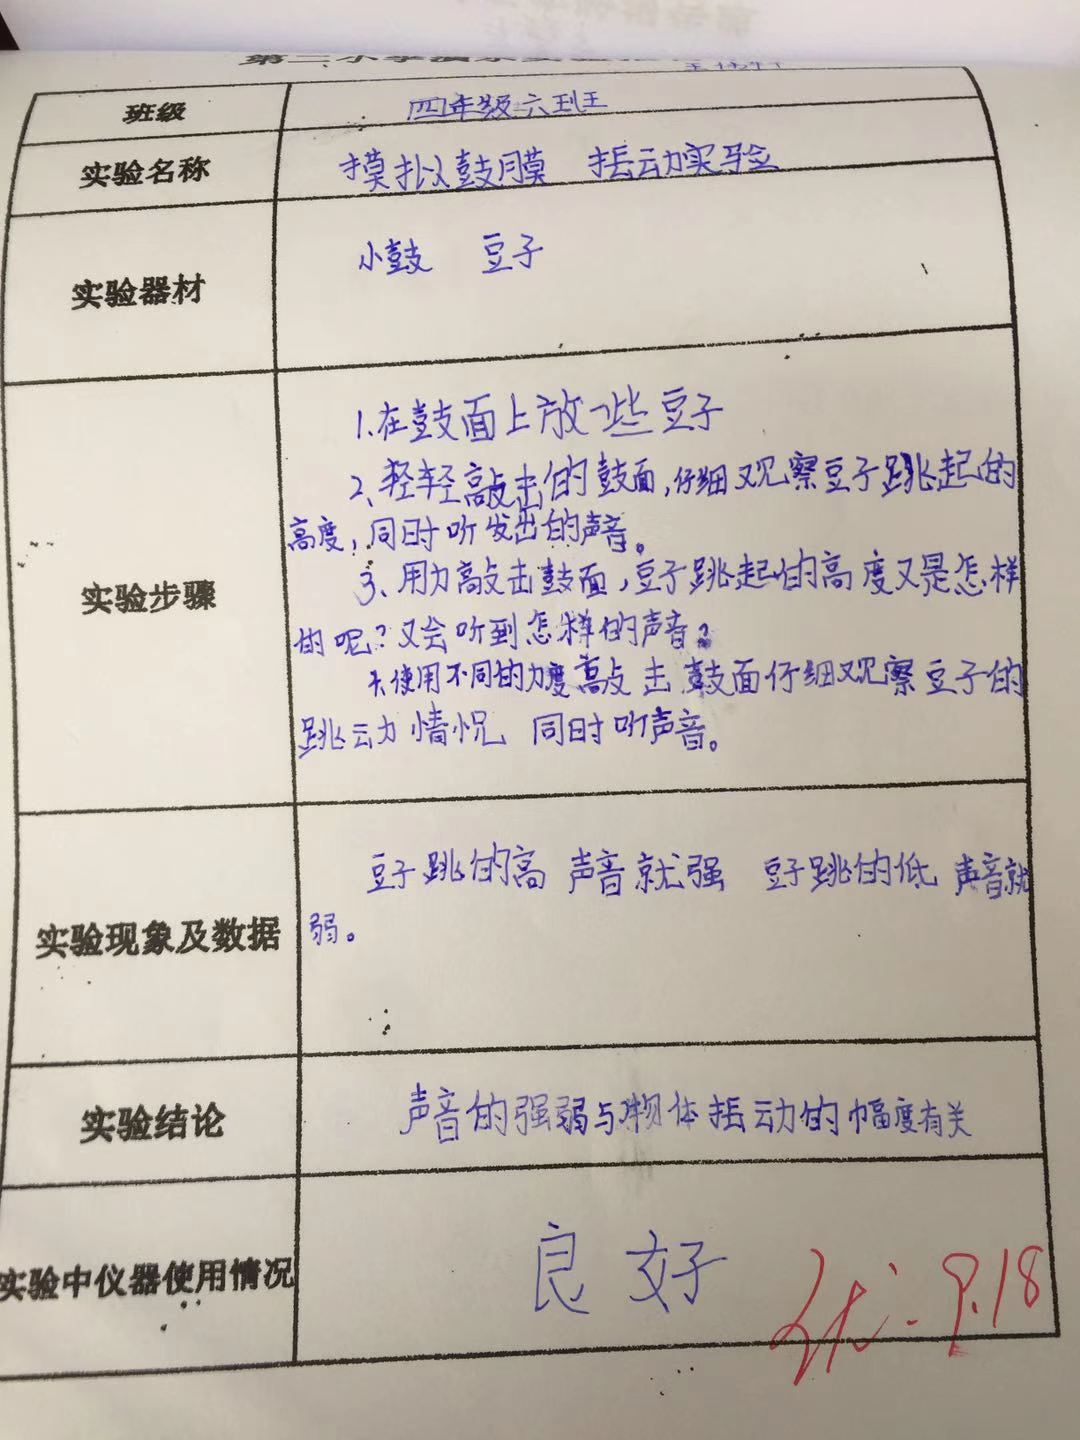 班级
四年级六班
实验名称
模拟鼓膜 振动实验
实验器材
小鼓 豆子
1.在鼓面上放一些豆子
2、轻轻敲击的鼓面,仔细观察豆子跳起的
高度,同时听发出的声音。
实验步骤
3、用力敲击鼓面,豆子跳起的高度又是怎样
的呢?又会听到怎样的声音?
使用不同的力度敲击鼓面仔细观察豆子的
跳动情况 同时听声音。
豆子跳的高 声音就强 豆子跳的低 声音就
弱。
实验现象及数据
实验结论
声音的强弱与物体振动的幅度有关
实验中仪器使用情况
良好
优. 9.18